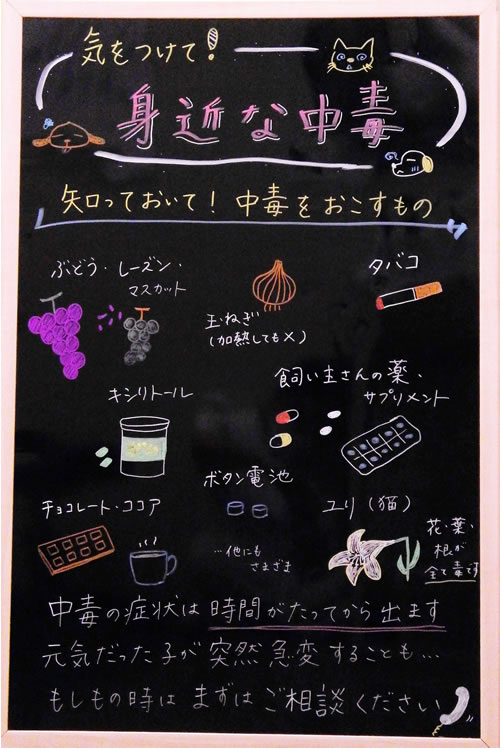 気をつけて!
身近な中毒
知っておいて! 中毒をおこすもの
ぶどう・レーズン・
マスカット
玉ねぎ
(加熱しても×)
タバコ
キシリトール
飼い主さんの薬、
サプリメント
ボタン電池
チョコレート・ココア
…他にも
さまざま
ユリ(猫)
花・葉・
根が
全て毒です
中毒の症状は時間がたってから出ます
元気だった子が突然急変することも…
もしもの時はまずはご相談ください